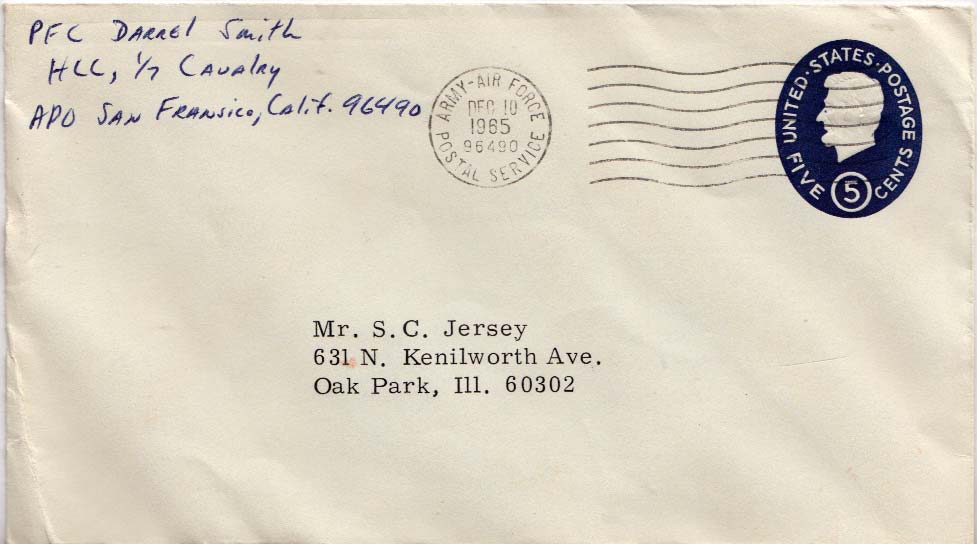 PFC Darrel Smith
HCC, 1/7 Cavalry
APO San Fransico, Calif. 96490
ARMY-AIR FORCE
DEC 10
1965
96490
POSTAL SERVICE
UNITED·STATES·POSTAGE
FIVE 5 CENTS
Mr. S.C. Jersey
631 N. Kenilworth Ave.
Oak Park, Ill. 60302